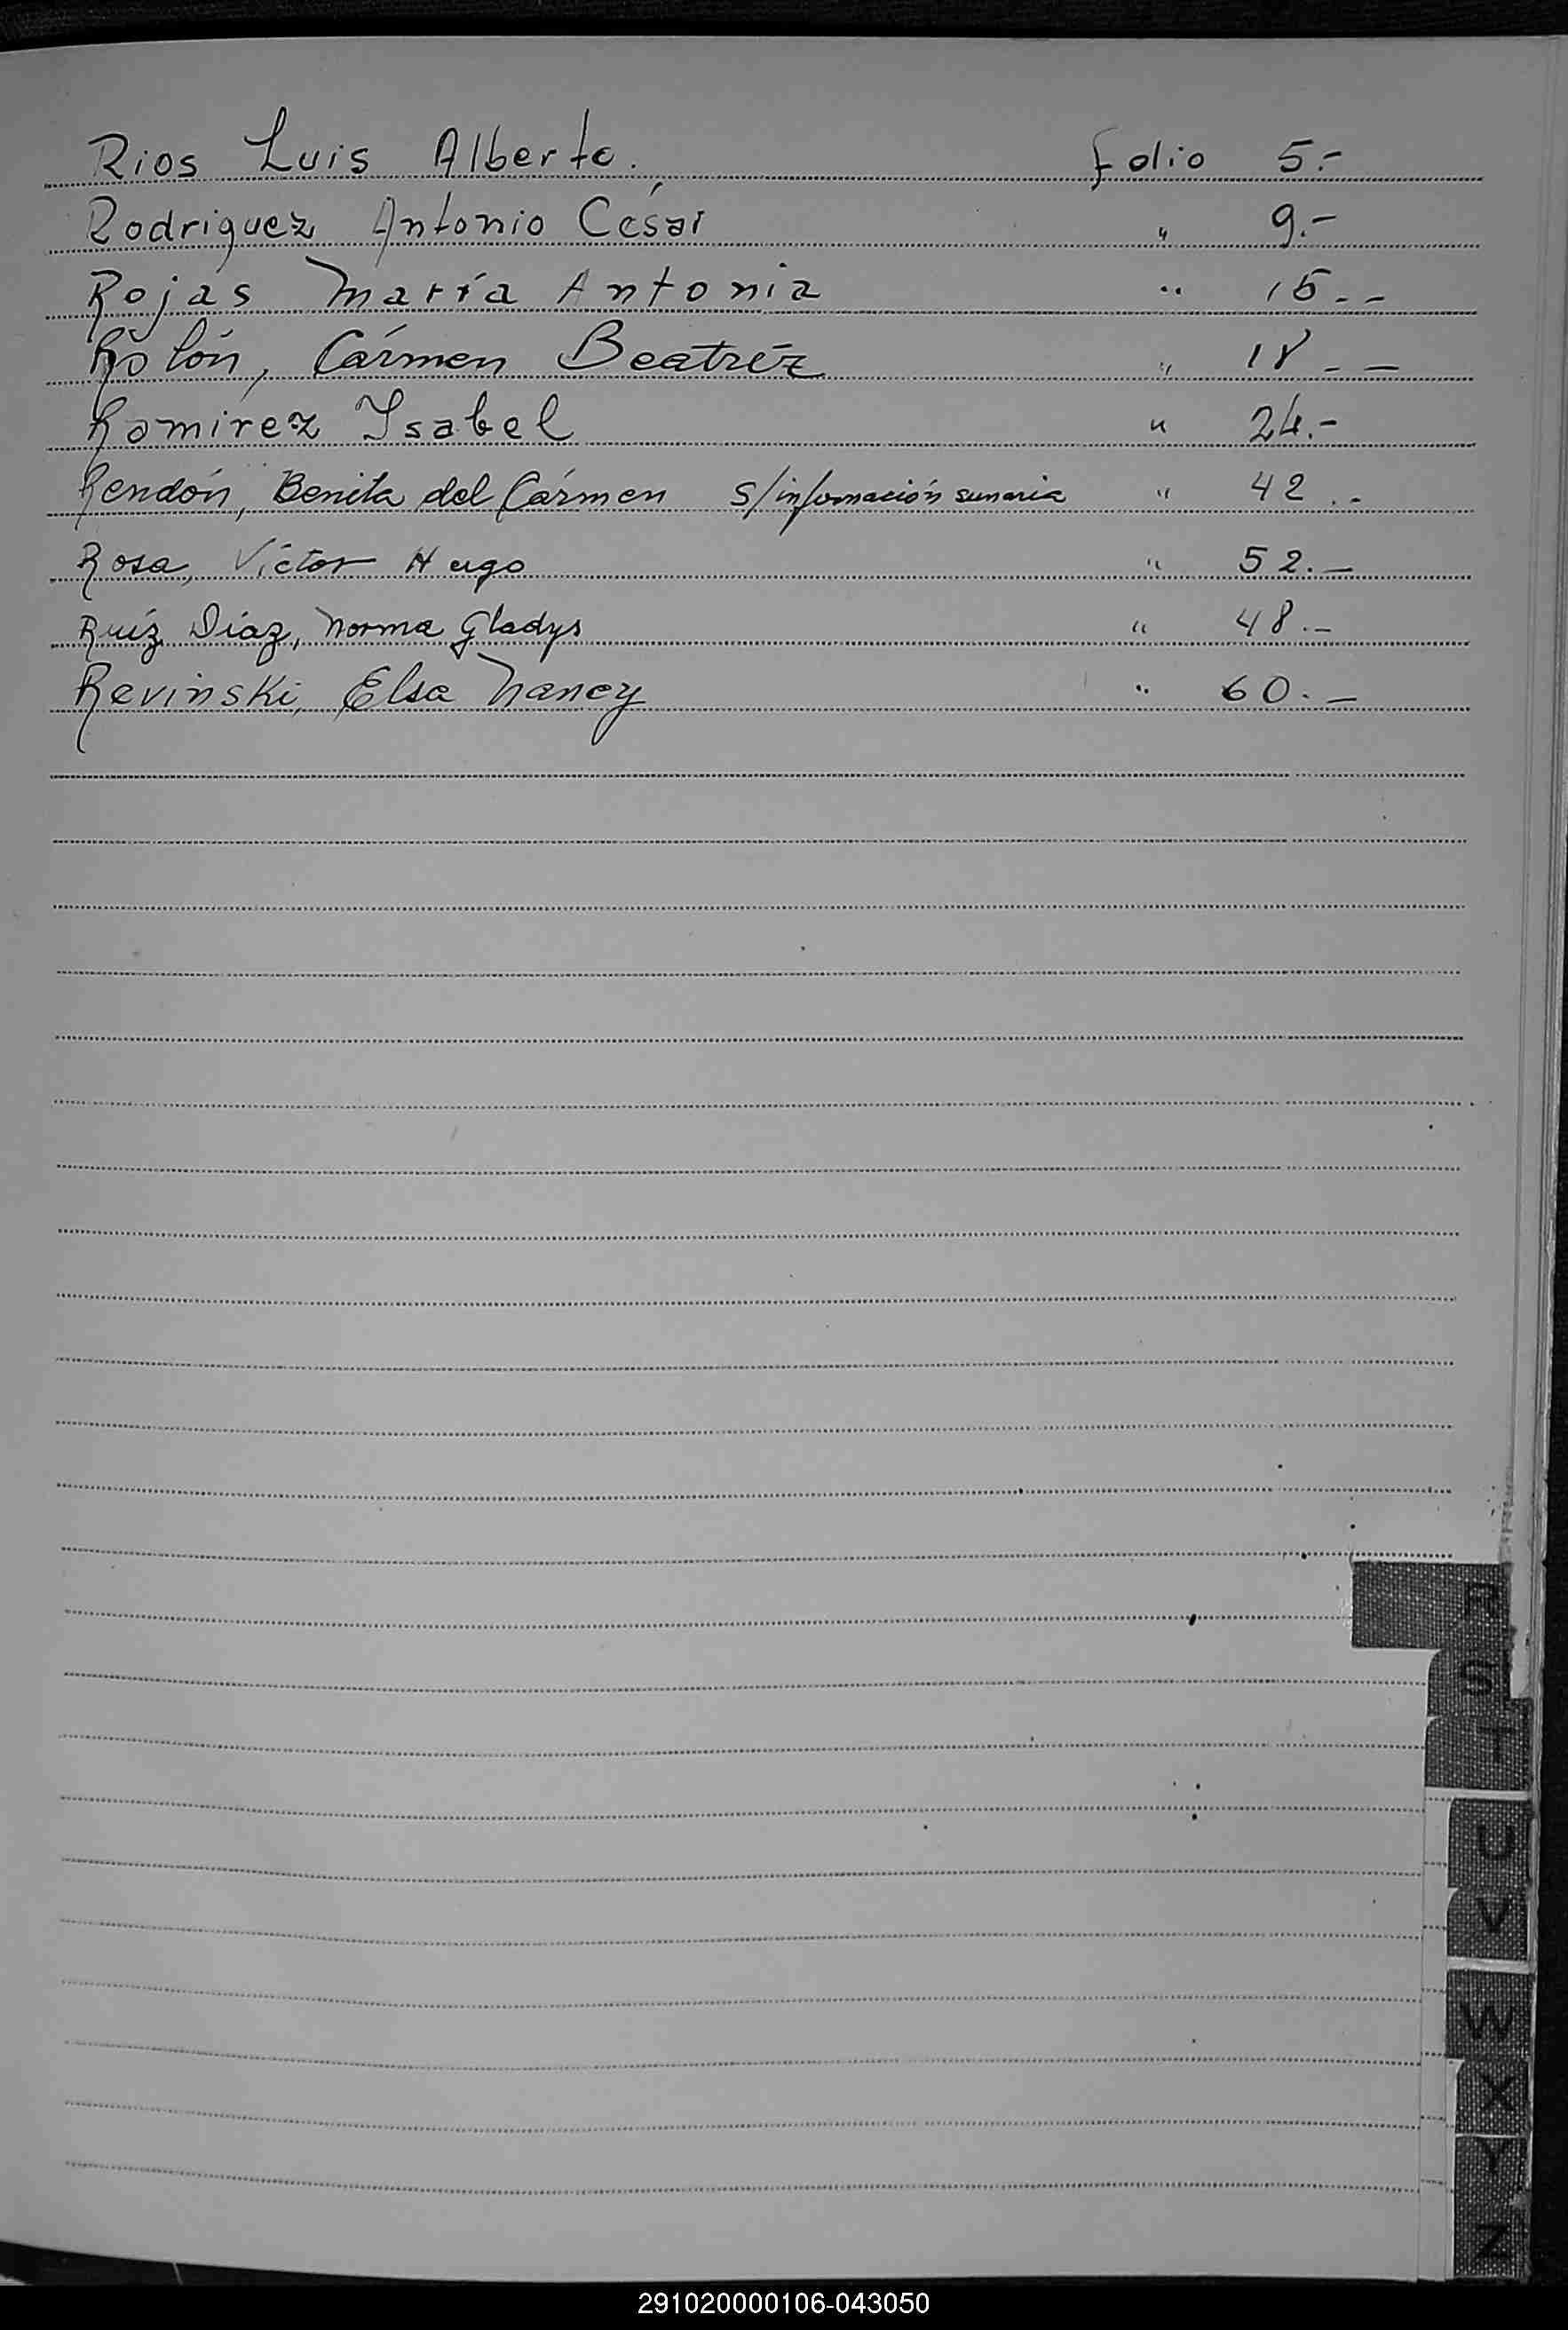 Rios Luis Alberto. Folio 5.-
Rodriguez Antonio César " 9.-
Rojas María Antonia " 15.--
Rolón, Cármen Beatríz " 18--
Ramirez Isabel " 24.-
Rendón, Benita del Cármen s/información sumaria " 42.-
Rosa, Víctor Hugo " 52.-
Ruíz Díaz, Norma Gladys " 48.-
Revinski, Elsa Nancy " 60.-
R
S
T
U
V
W
X
Y
Z
291020000106-043050